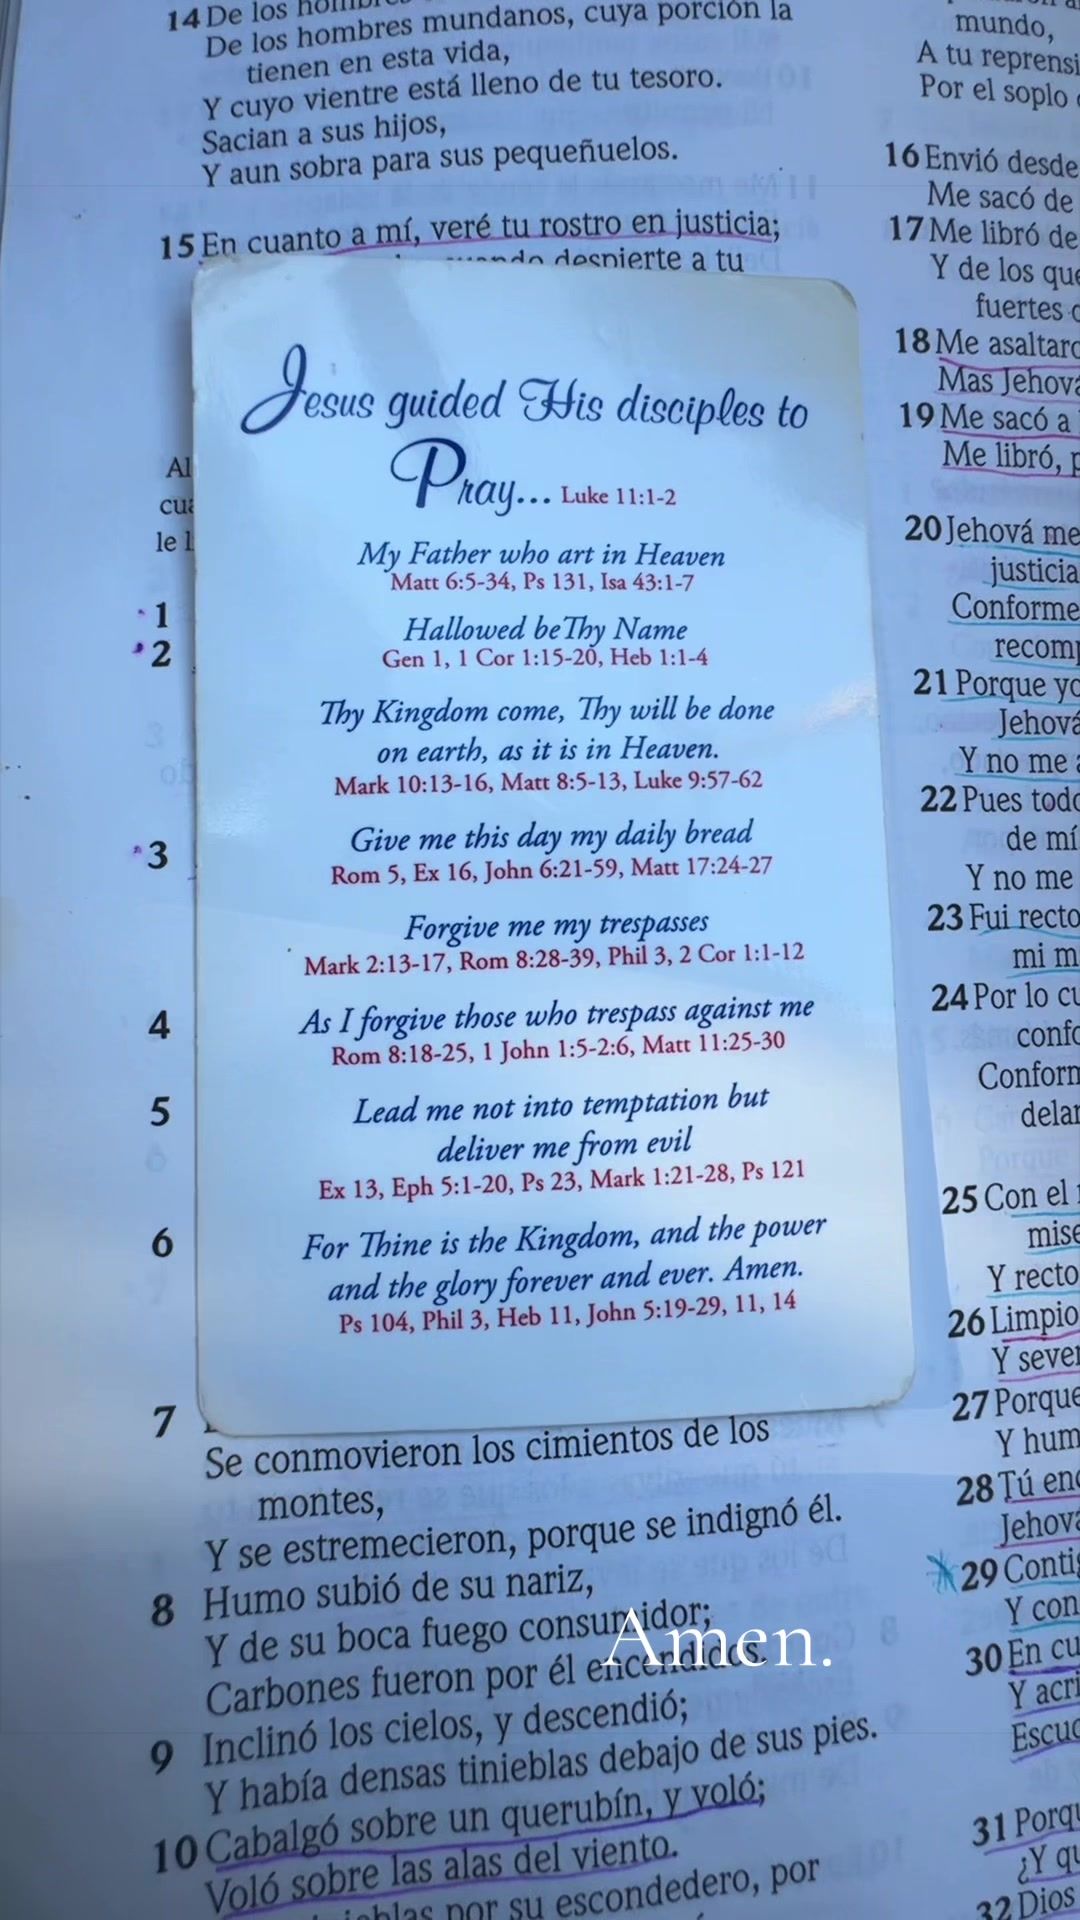 14 De los
De los hombres mundanos, cuya porción la
tienen en esta vida,
Y cuyo vientre está lleno de tu tesoro.
Sacian a sus hijos,
Y aun sobra para sus pequeñuelos.
15 En cuanto a mí, veré tu rostro en justicia;
despierte a tu
Jesus guided His disciples to
Pray... Luke 11:1-2
My Father who art in Heaven
Matt 6:5-34, Ps 131, Isa 43:1-7
Hallowed be Thy Name
Gen 1, 1 Cor 1:15-20, Heb 1:1-4
Thy Kingdom come, Thy will be done
on earth, as it is in Heaven.
Mark 10:13-16, Matt 8:5-13, Luke 9:57-62
Give me this day my daily bread
Rom 5, Ex 16, John 6:21-59, Matt 17:24-27
Forgive me my trespasses
Mark 2:13-17, Rom 8:28-39, Phil 3, 2 Cor 1:1-12
As I forgive those who trespass against me
Rom 8:18-25, 1 John 1:5-2:6, Matt 11:25-30
Lead me not into temptation but
deliver me from evil
Ex 13, Eph 5:1-20, Ps 23, Mark 1:21-28, Ps 121
For Thine is the Kingdom, and the power
and the glory forever and ever. Amen.
Ps 104, Phil 3, Heb 11, John 5:19-29, 11, 14
Al
le
1
2
3
4
5
6
7
Se conmovieron los cimientos de los
montes,
Y se estremecieron, porque se indignó él.
8 Humo subió de su nariz,
Y de su boca fuego consumidor;
Carbones fueron por él encendidos.
Amen.
9 Inclinó los cielos, y descendió;
Y había densas tinieblas debajo de sus pies.
10 Cabalgó sobre un querubín, y voló;
Voló sobre las alas del viento.
por su escondedero, por
mundo,
A tu
Por el soplo
16 Envió desde
Me sacó de
17 Me libró de
Y de los que
fuertes
18 Me
Mas Jehová
19 Me sacó a
Me libró,
20 Jehová me
justicia
Conforme
21 Porque yo
Jehová
Y no me
22 Pues
de mí
Y no me
23 Fui recto
mi
24 Por lo
25 Con el
Y recto
26 Limpio
Y
27 Porque
Y
28 Tú
Jehová
29
Y con
30 En
Y
31
¿Y
32 Dios